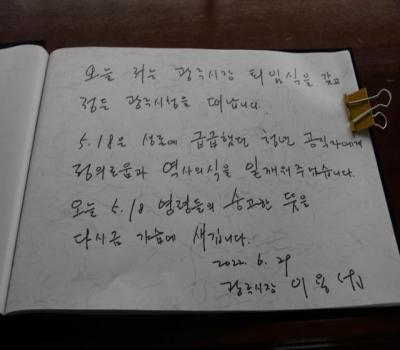 오늘 저는 광주시장 퇴임식을 갖고
정든 광주시청을 떠납니다.
5.18은 생존에 급급했던 청년 공직자에게
정의로움과 역사의식을 일깨워주었습니다.
오늘 5.18 영령들의 숭고한 뜻을
다시금 가슴에 새깁니다.
2022. 6. 29
광주시장 이용섭